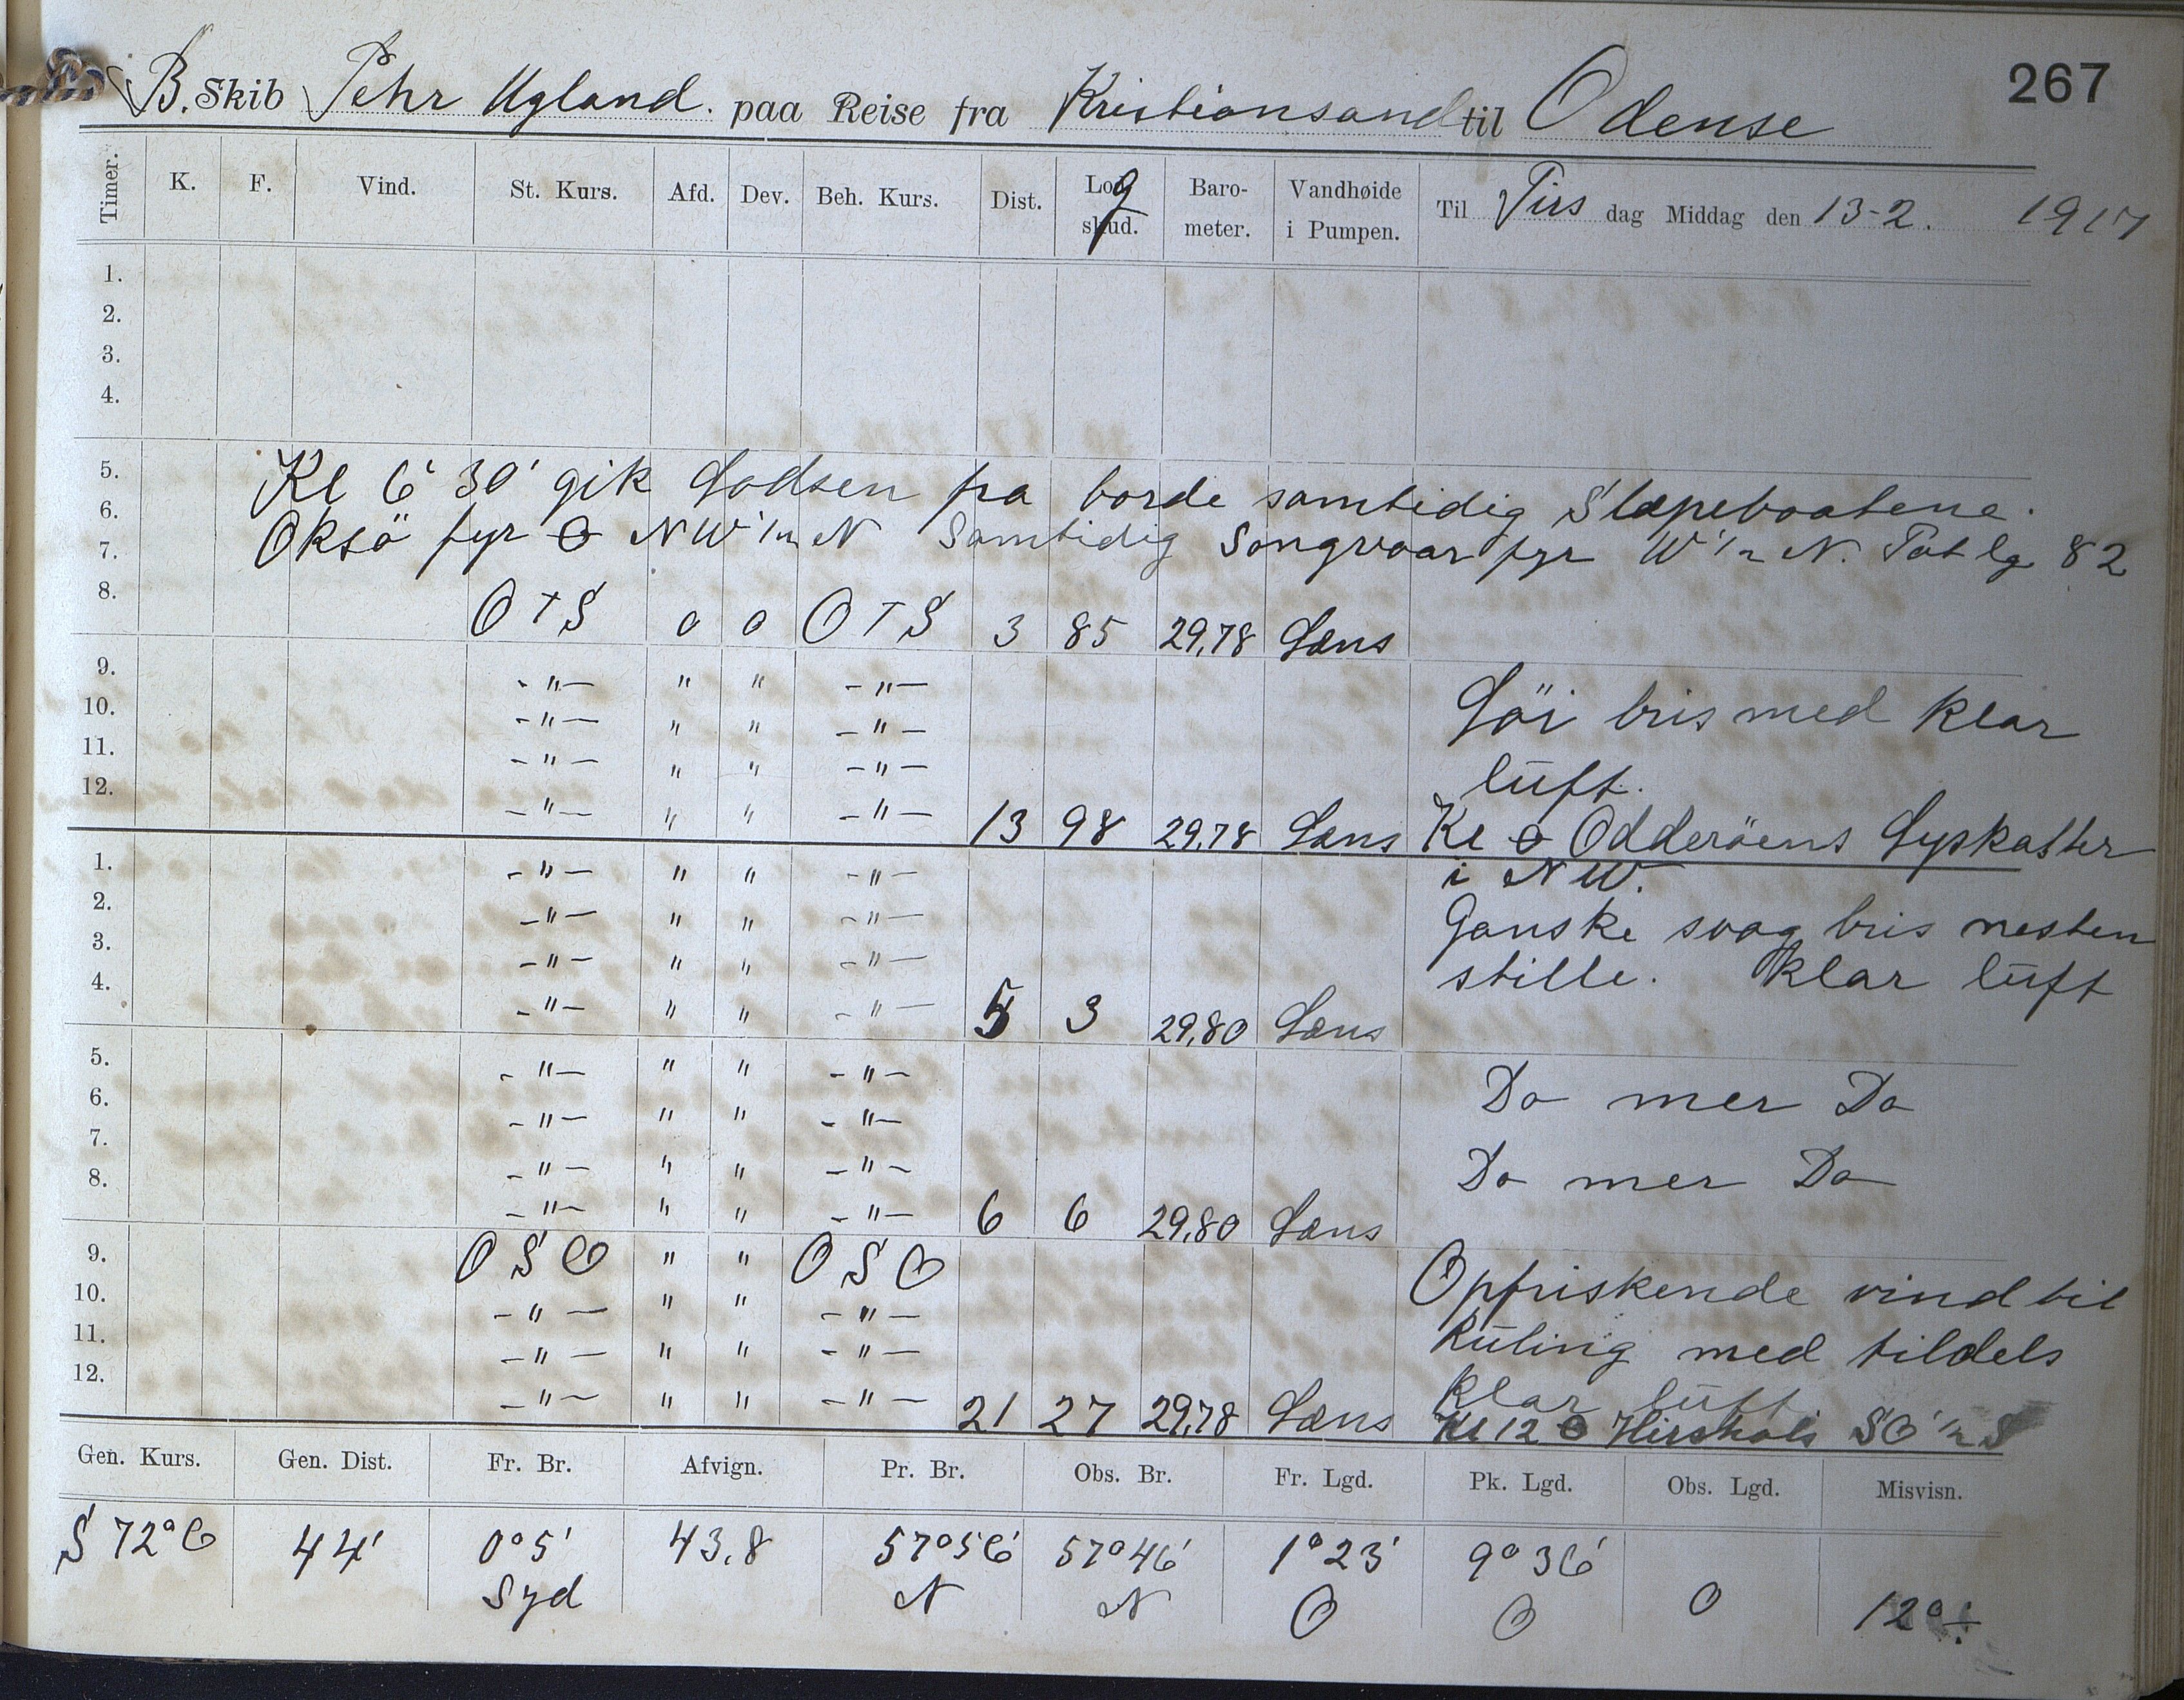 267
B. Skib Pehr Ugland. paa Reise fra Kristiansand til Odense
Timer. K. F. Vind. St. Kurs. Afd. Dev. Beh. Kurs. Dist. Log skud. Baro-meter. Vandhøide i Pumpen. Til Tirs dag Middag den 13-2. 1917
1.
2.
3.
4.
5. Kl 6' 30' gik Lodsen fra borde samtidig Slæpebaatene.
6. Oksö fyr NW 1/2 N Samtidig Songvaar fyr W 1/2 N. Pat lg 82
7.
8. O T S 0 0 O T S 3 85 29,78 Læns
9. -"- " " -"-
10. -"- " " -"- Löi bris med klar
11. -"- " " -"- luft.
12. -"- " " -"- 13 98 29.78 Læns Kl Odderöens Lyskaster
1. -"- " " -"- i NW.
2. -"- " " -"- Ganske svag bris nesten
3. -"- " " -"- stille. klar luft
4. -"- " " -"- 5 3 29,80 Læns
5. -"- " " -"- Do mer Do
6. -"- " " -"-
7. -"- " " -"- Do mer Do
8. -"- " " -"- 6 6 29,80 Læns
9. O S O " " O S O Opfriskende vind til
10. -"- " " -"-
11. -"- " " -"- kuling med tildels
12. -"- " " -"- 21 27 29,78 Læns klar luft
Kl 12 Hirshals SO 1/2 S
Gen. Kurs. Gen. Dist. Fr. Br. Afvign. Pr. Br. Obs. Br. Fr. Lgd. Pk. Lgd. Obs. Lgd. Misvisn.
S 72° O 44' 0° 5' 43.8 57° 56' 57° 46' 1° 23' 9° 36'
Syd N N O O O 12° ÷